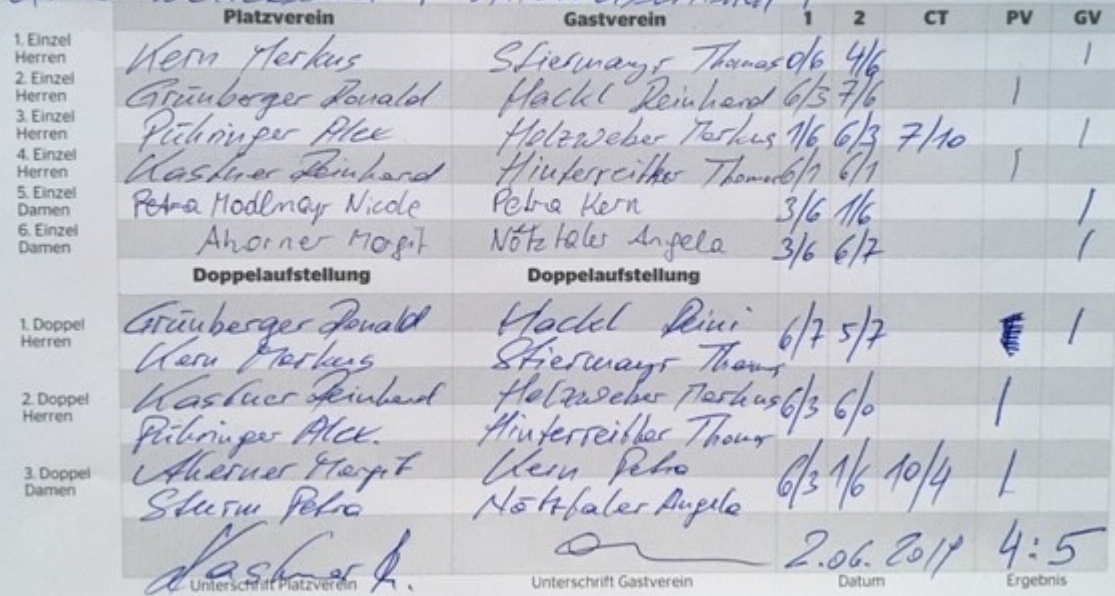 Platzverein Gastverein 1 2 CT PV GV
1. Einzel Herren Kern Markus Stiermayr Thomas 0/6 4/6 |
2. Einzel Herren Grünberger Ronald Hackl Reinhard 6/3 7/6 |
3. Einzel Herren Pühringer Alex Holzweber Markus 1/6 6/3 7/10 |
4. Einzel Herren Kastner Reinhard Hinterreither Thomas 6/1 6/1 |
5. Einzel Damen Modlmayr Nicole Petra Kern 3/6 1/6 |
6. Einzel Damen Ahorner Margit Nötztaler Angela 3/6 6/7 |
Doppelaufstellung Doppelaufstellung
1. Doppel Herren Grünberger Ronald Hackl Reini 6/7 5/7 |
Kern Markus Stiermayr Thomas
2. Doppel Herren Kastner Reinhard Holzweber Markus 6/3 6/0 |
Pühringer Alex. Hinterreither Thomas
3. Doppel Damen Ahorner Margit Kern Petra 6/3 1/6 10/4 |
Sturm Petra Nötztaler Angela
Kastner R. 2.06.2019 4:5
Unterschrift Platzverein Unterschrift Gastverein Datum Ergebnis